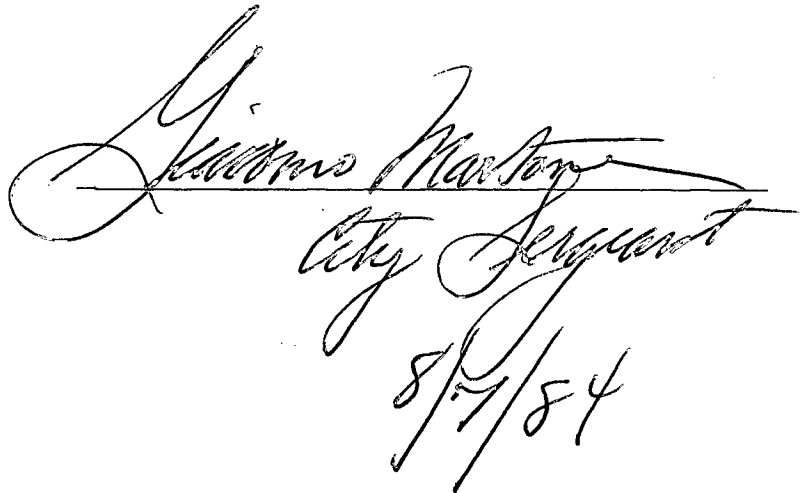 Giacomo Martone
City Sergeant
8/7/84